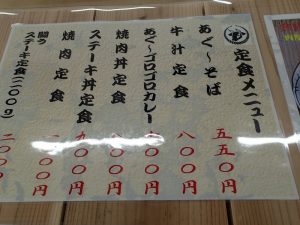 定食メニュー
あく〜そば 五五〇円
牛汁定食 八〇〇円
あぐ〜ゴロゴロカレー 〇〇円
焼肉丼定食 八〇〇円
ステーキ丼定食 九〇〇円
焼肉定食 一〇〇〇円
闘う
ステーキ定食(二〇〇g) 二〇〇〇円